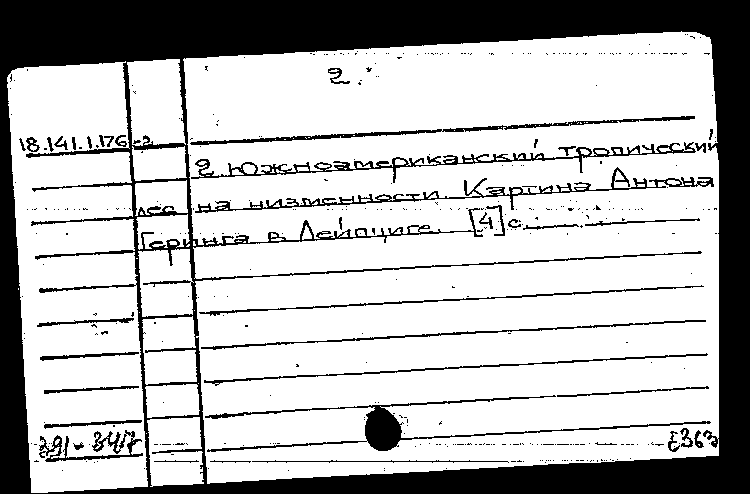 2.
18.141.1.176
2 Южноамериканский тропический
лес на низменности. Картина Антона
Геринга в Лейпциге. [4] с.
391-347
E363